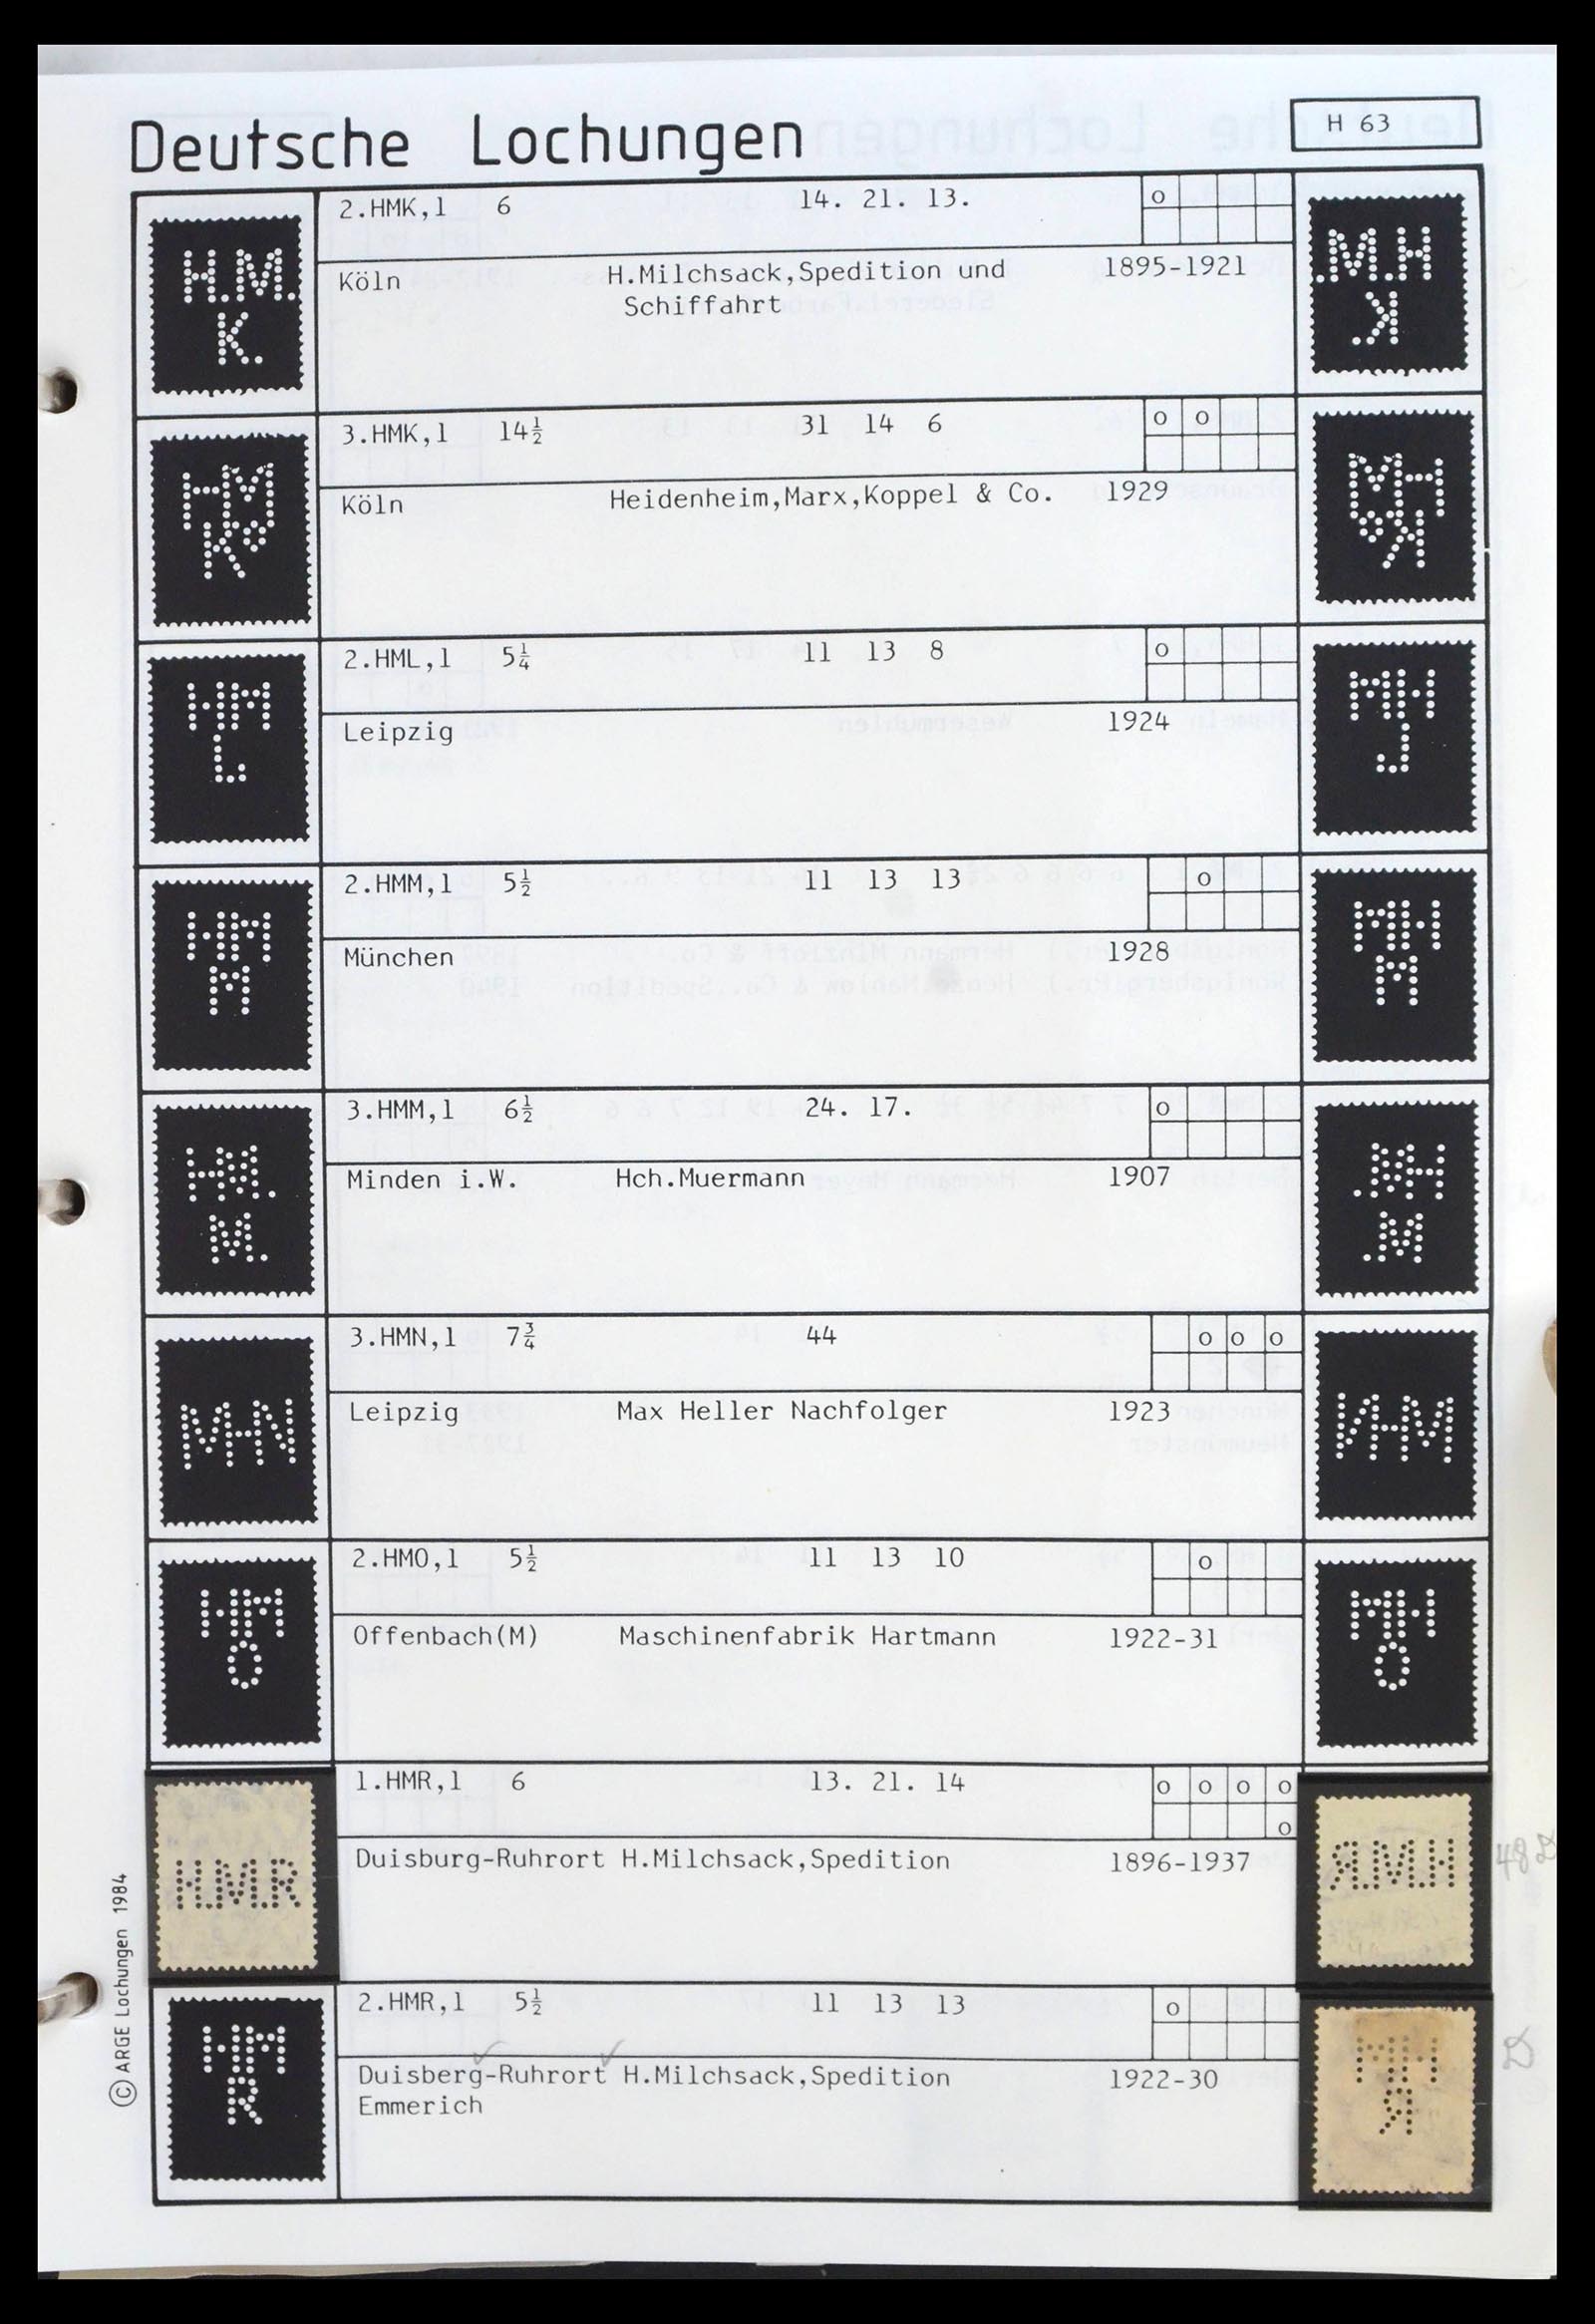 Deutsche Lochungen
H 63
H.M.
K.
2.HMK,1 6 14. 21. 13. o
Köln H.Milchsack,Spedition und 1895-1921
Schiffahrt
HM
Ko
3.HMK,1 14½ 31 14 6 o o
Köln Heidenheim,Marx,Koppel & Co. 1929
HM
L
2.HML,1 5¼ 11 13 8 o
Leipzig 1924
HM
M
2.HMM,1 5½ 11 13 13 o
München 1928
HM.
M.
3.HMM,1 6½ 24. 17. o
Minden i.W. Hch.Muermann 1907
MHN
3.HMN,1 7¾ 44 o o o
Leipzig Max Heller Nachfolger 1923
HM
O
2.HMO,1 5½ 11 13 10 o
Offenbach(M) Maschinenfabrik Hartmann 1922-31
H.M.R
1.HMR,1 6 13. 21. 14 o o o o
o
Duisburg-Ruhrort H.Milchsack,Spedition 1896-1937
HM
R
2.HMR,1 5½ 11 13 13 o
Duisberg-Ruhrort H.Milchsack,Spedition 1922-30
Emmerich
© ARGE Lochungen 1984